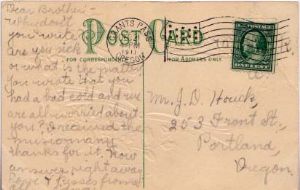 Dear Brother-
Why don't
you write
are you sick
or what is the matter
You wrote that you
had a bad cold and we
are all worried about
you. I received the
music many
thanks for it. Now
answer right away
kisses from
POST CARD
FOR CORRESPONDENCE
FOR ADDRESS ONLY
GRANTS PASS
1911
OREGON
ONE CENT
Mr. J. D. Houck,
253 Front St.,
Portland
Oregon.